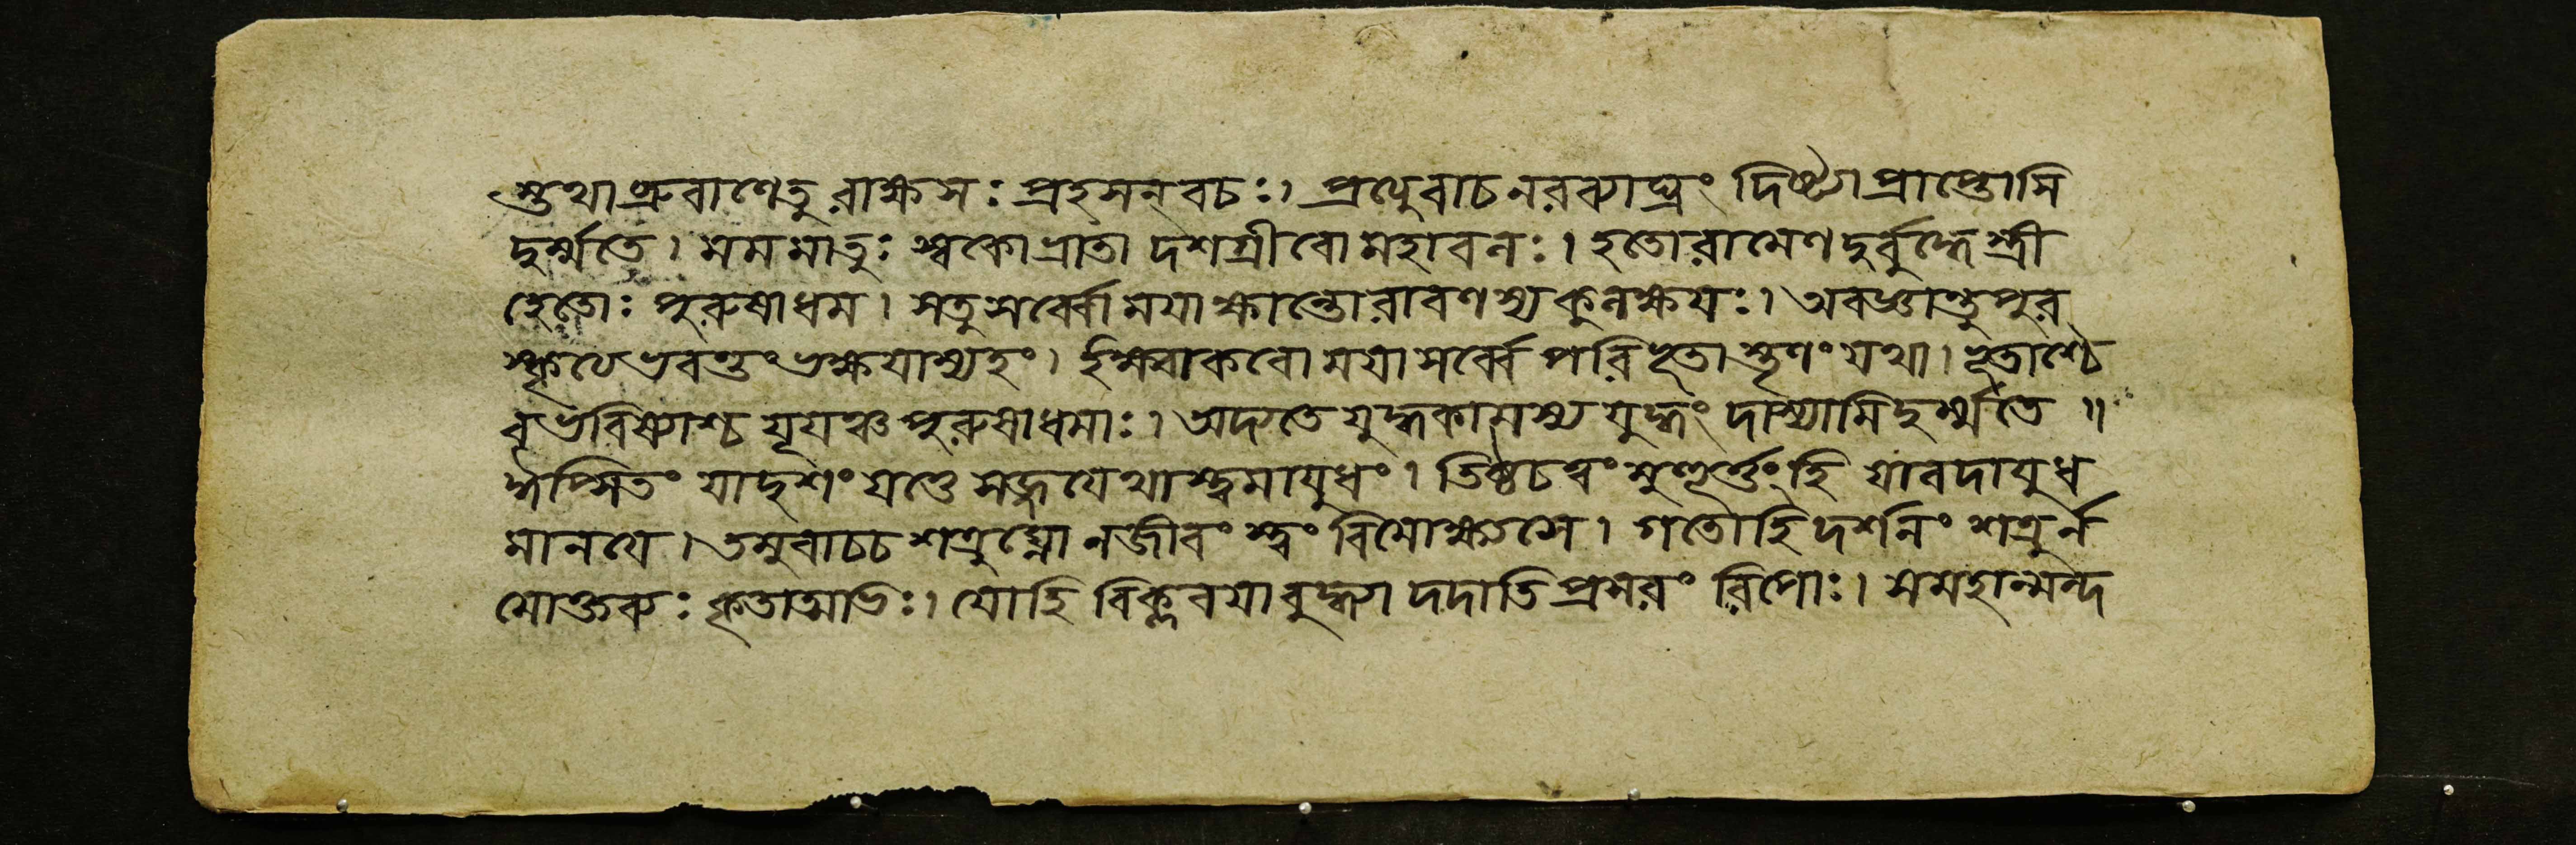 স্তথা ব্রুবাণেতু রাক্ষসঃ প্রহসন্ বচঃ। প্রত্যুবাচ নরব্যাঘ্রং দিষ্ট্যা প্রাপ্তোসি
দুর্ম্মতে। মম মাতুঃ স্বকো ভ্রাতা দশগ্রীবো মহাবলঃ। হতো রামেণ দুর্বুদ্ধে স্ত্রী
হেতোঃ পুরুষাধম। সতু সর্ব্বো ময়া ক্ষান্তো রাবণস্য কুলক্ষয়ঃ। অবজ্ঞান্তু পুর
স্কৃত্যে ভবন্তং ভক্ষয়াম্যহং। ইক্ষ্বাকবো ময়া সর্ব্বে পরিভূতা স্তৃণং যথা। ভূতাশ্চৈ
ব ভবিষ্যাশ্চ যূয়ঞ্চ পুরুষাধমাঃ। অদ্যতে যুদ্ধকামস্য যুদ্ধং দাস্যামি দুর্ম্মতে॥
র্দ্ধপ্সিতং যাদৃশং যত্তে সজ্জয়ে থাস্ত্বমায়ুধং। তিষ্ঠ চ ত্বং মুহূর্ত্তং হি যাবদায়ুধ
মানয়ে। তমুবাচচ শত্রুঘ্নো ন জীবং স্ত্বং বিমোক্ষ্যসে। গতোহি দর্শনং শত্রুর্ন
মোক্তব্যঃ কৃতাত্মভিঃ। যোহি বিক্লবয়া বুদ্ধ্যা দদাতি প্রসরং রিপোঃ। স মহান্মন্দ